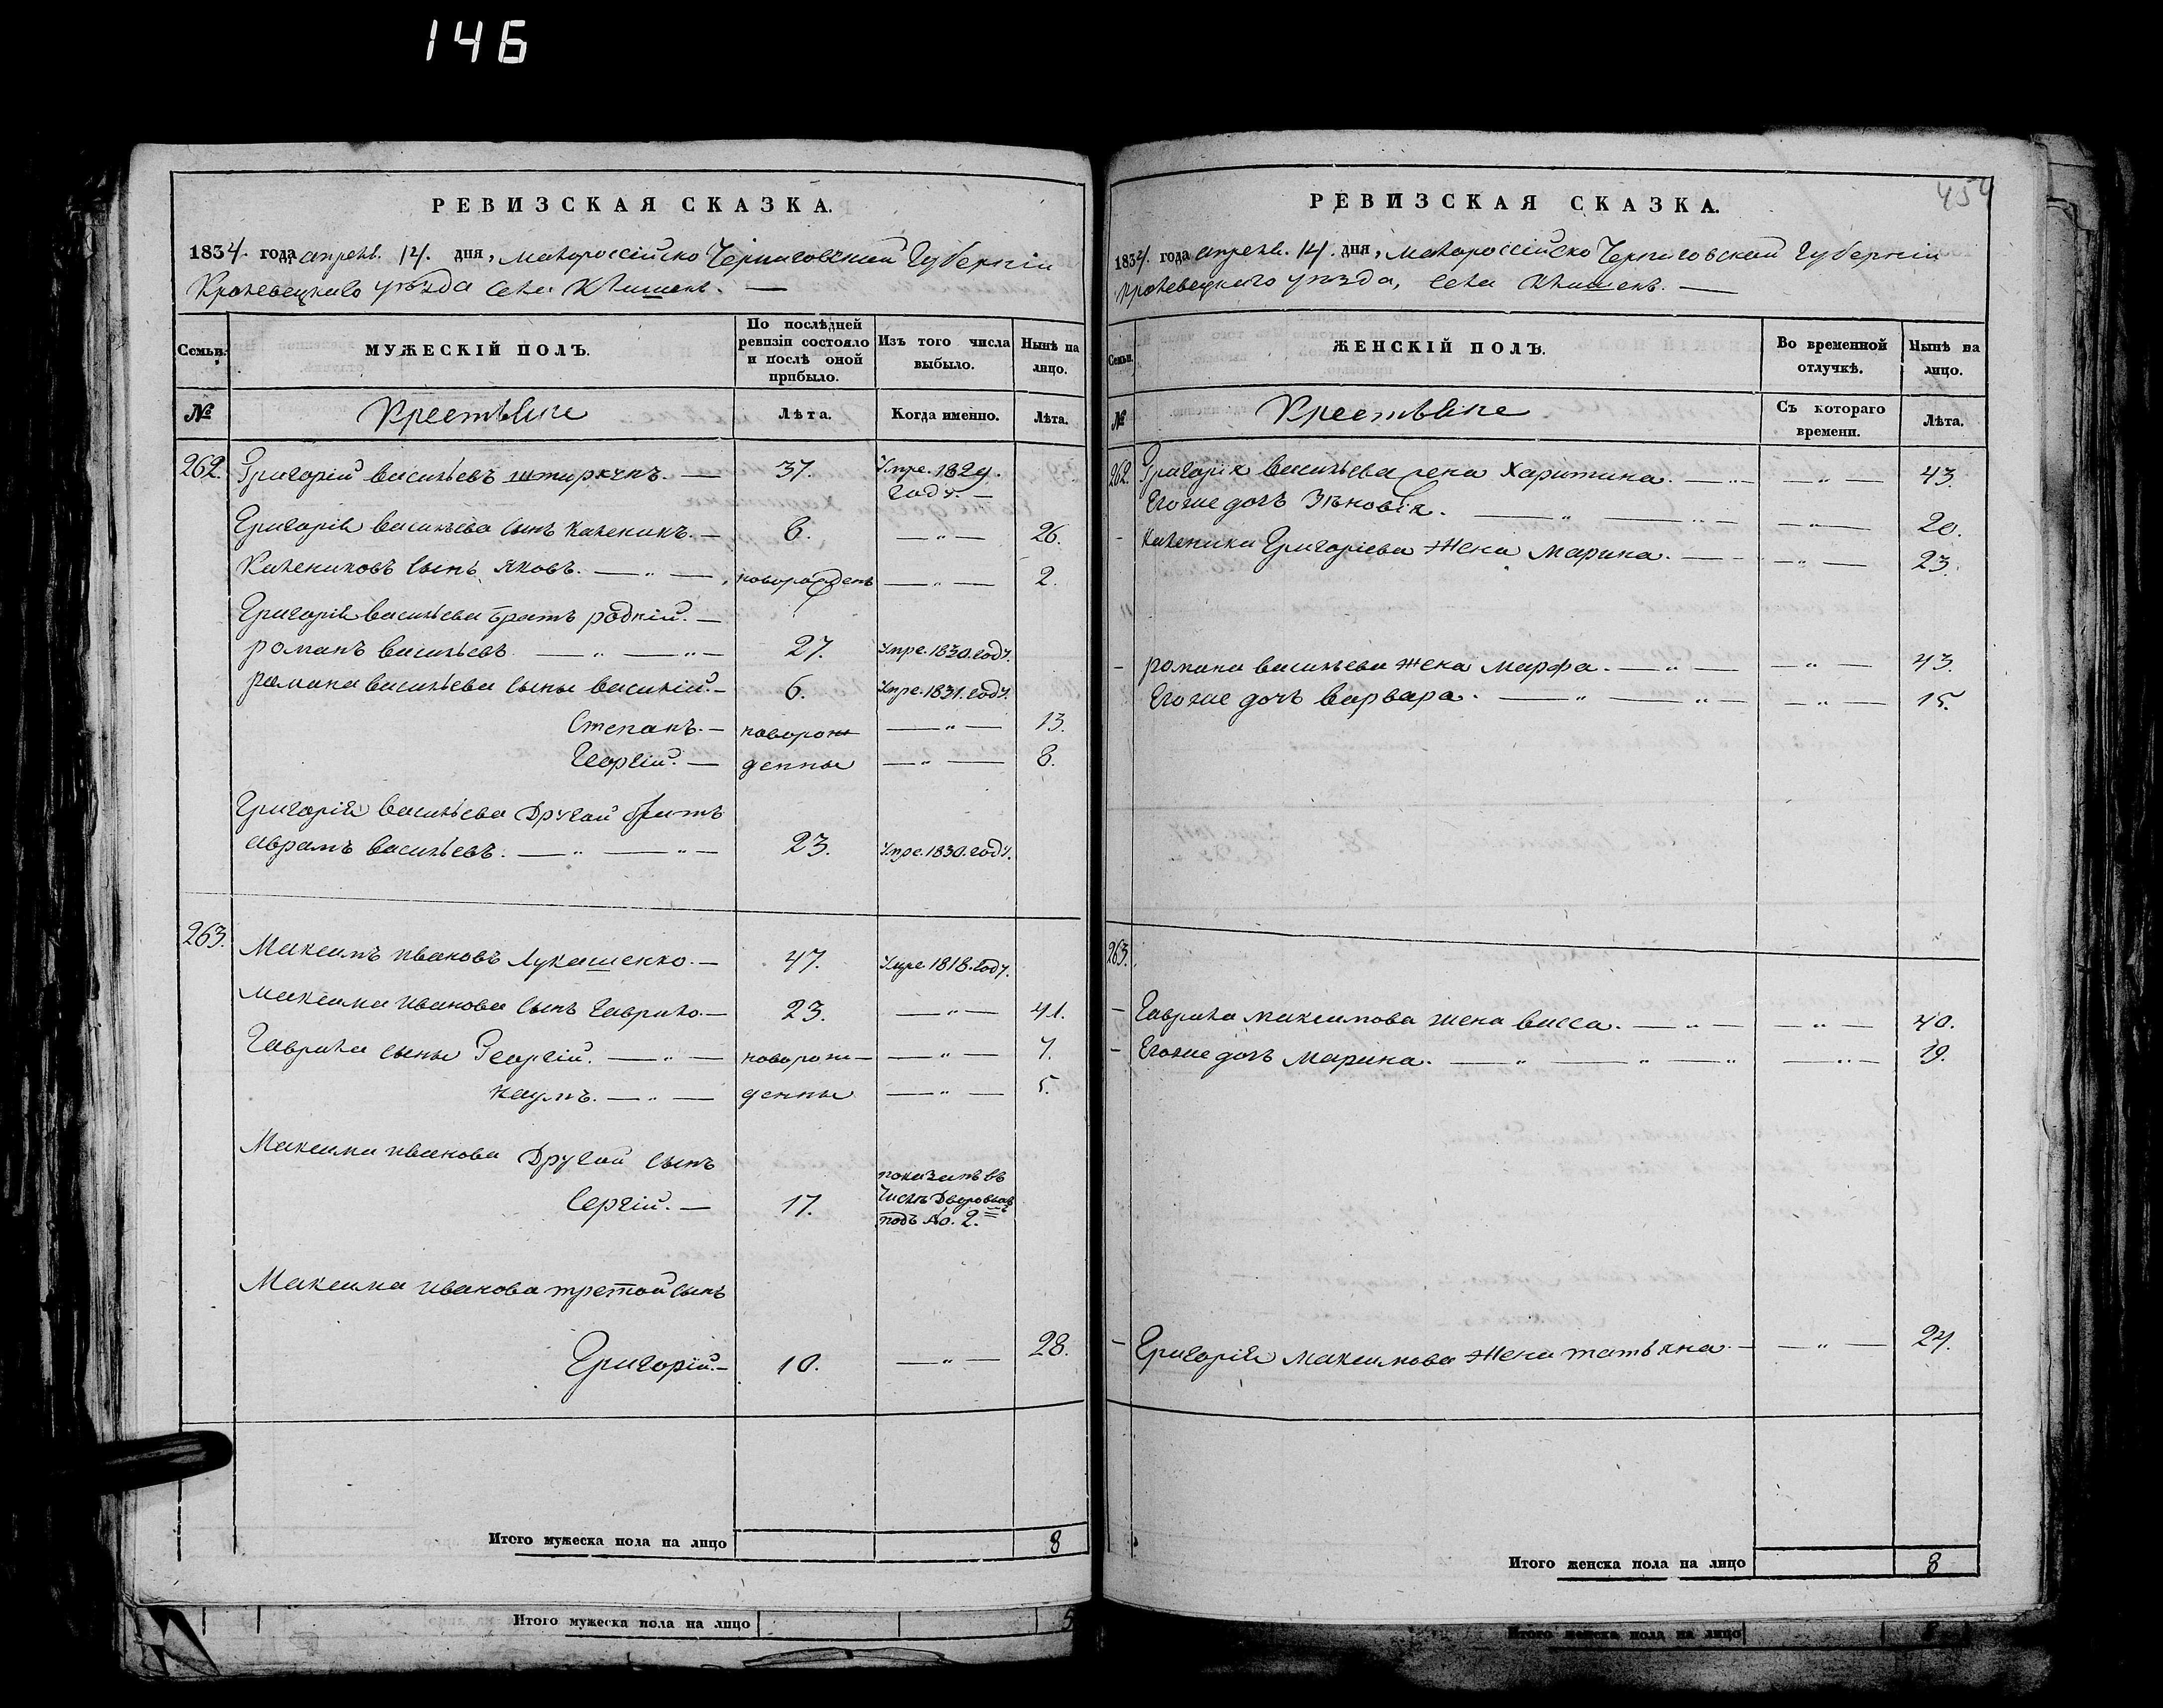 146
РЕВИЗСКАЯ СКАЗКА.
1834. года апреля. 14. дня, Малороссійско Черниговской Губерніи
Кролевецкаго уѣзда Села Клишекъ. —
Семьи.
МУЖЕСКІЙ ПОЛЪ.
По послѣдней ревизіи состояло и послѣ оной прибыло.
Изъ того числа выбыло.
Нынѣ на лицо.
№
Крестьяне
Лѣта.
Когда именно.
Лѣта.
262. Григорій Васильевъ — 37. Умре. 1829. году —
Григорія Васильева сынъ Каленикъ. — 6. — 26.
Калениковъ сынъ Яковъ. — новорожденъ — 2.
Григорія Васильева братъ родній. —
Романъ Васильевъ — 27. Умре. 1830. году.
Романа Васильева сыны Василій. — 6. Умре. 1831. году.
Степанъ. — новорож — 13.
Георгій. — денны — 8.
Григорія Васильева Другой братъ
Аврамъ Васильевъ. — 23. Умре. 1830. году.
263. Максимъ Ивановъ Лукашенко. — 47. Умре. 1818. году.
Максима Иванова сынъ Гаврило. — 23. — 41.
Гаврила сыны Георгій. — новорож — 7.
Наумъ. — денны — 5.
Максима Иванова Другой сынъ
Сергій. — 17. показанъ въ числѣ Дворовыхъ подъ №. 2.
Максима Иванова третой сынъ
Григорій. — 10. — 28.
Итого мужеска пола на лицо 8
Итого мужеска пола на лицо 5
454
РЕВИЗСКАЯ СКАЗКА.
1834. года апреля. 14. дня, Малороссійско Черниговской Губерніи
Кролевецкаго уѣзда, Села Клишекъ. —
Семьи.
ЖЕНСКІЙ ПОЛЪ.
Во временной отлучкѣ.
Нынѣ на лицо.
№
Крестьяне
Съ котораго времени.
Лѣта.
262. Григорія Васильева жена Харитина. — 43.
Егоже дочь Зѣновія. — 20.
Каленика Григоріева Жена Марина. — 23.
Романа Васильева Жена Марфа. — 43.
Егоже дочь Варвара. — 15.
263.
Гаврила Максимова жена Васса. — 40.
Егоже дочь Марина. — 19.
Григорія Максимова Жена татьяна. — 24.
Итого женска пола на лицо 8
Итого женска пола на лицо